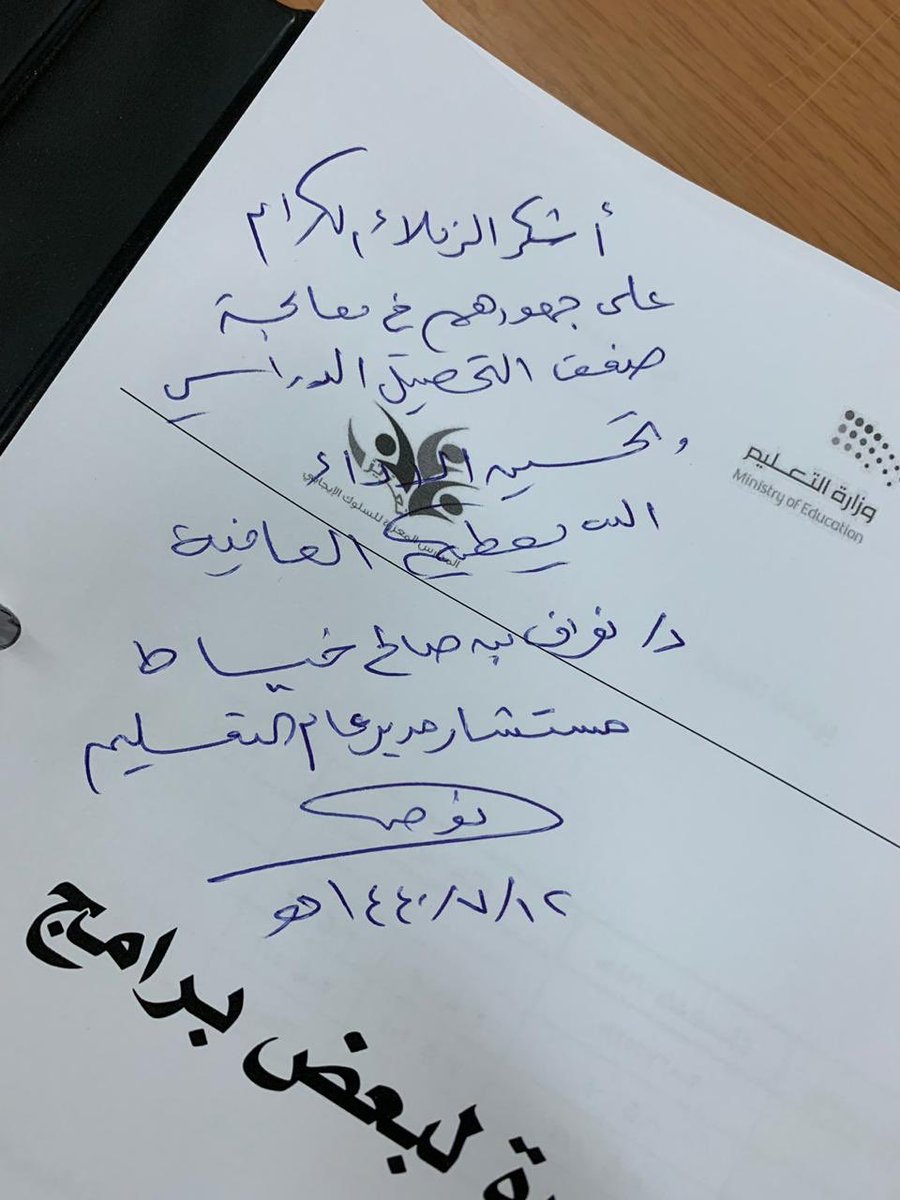 أشكر الزملاء الكرام
على جهودهم في معالجة
ضعف التحصيل الدراسي
وتحسين الأداء
الله يعطيهم العافية
د/ نواف بن صالح خياط
مستشار مدير عام التعليم
١٤٤٠/٧/١٢هـ
وزارة التعليم
Ministry of Education
المدارس المعززة للسلوك الإيجابي
لبعض برامج